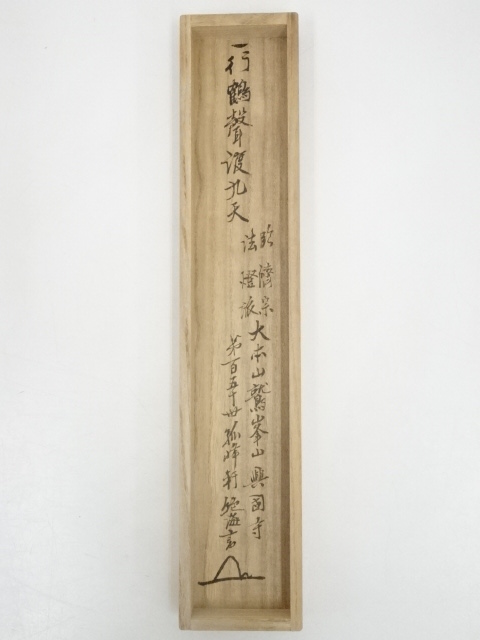 一行 鶴聲渡九天
臨濟宗
法燈派
大本山鷲峯山興國寺
第百五十世孤峰軒絶海書